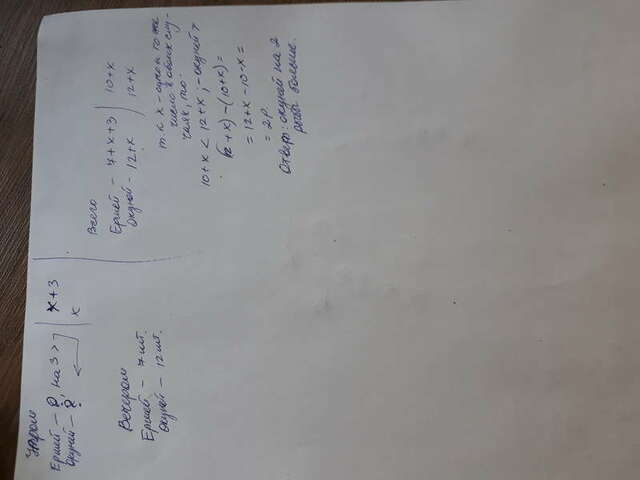 Утром
Ершей – ?, на 3 > | x + 3
Окуней – ? | x
Вечером
Ершей – 7 шт.
Окуней – 12 шт.
Всего
Ершей – 7 + x + 3 | 10 + x
Окуней – 12 + x | 12 + x
т.к x – одно и то же
число в обоих слу-
чаях, то:
10 + x < 12 + x ; – окуней >
(12 + x) – (10 + x) =
= 12 + x – 10 – x =
= 2 р.
Ответ: окуней на 2
рыбы больше.